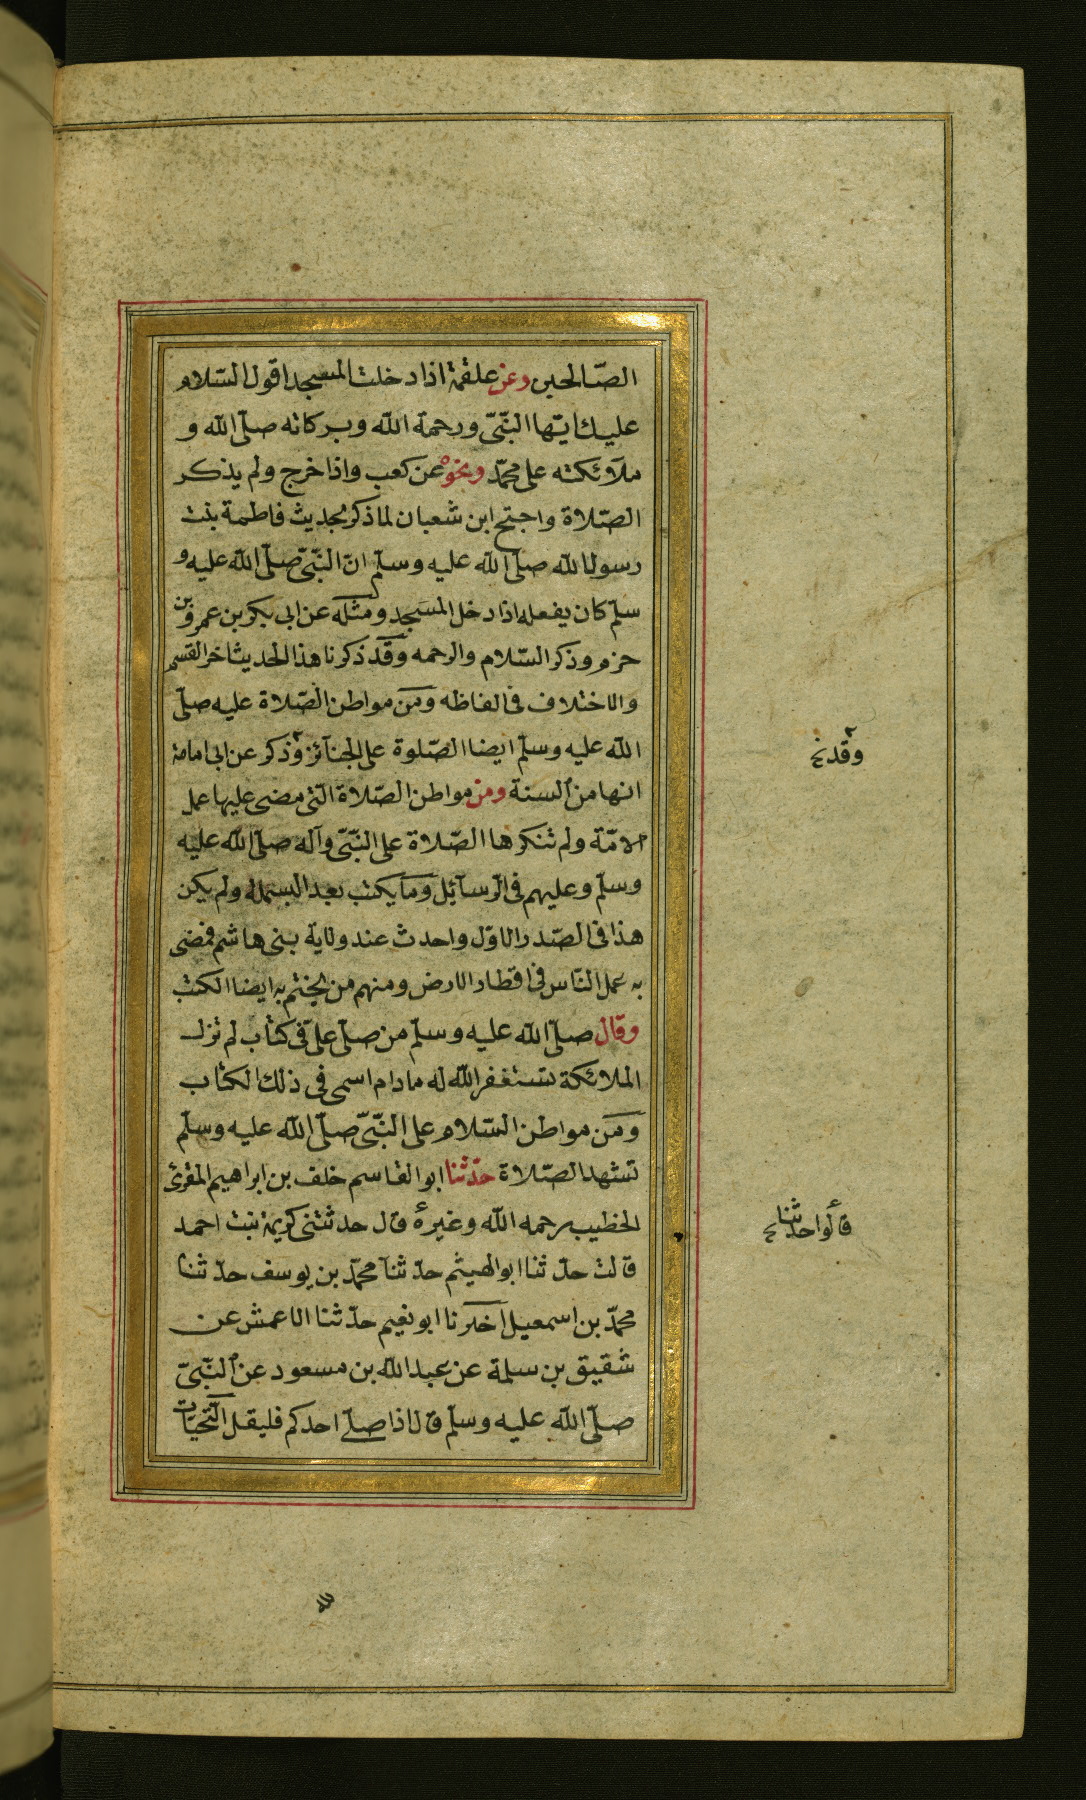 الصّالحين وعن علقمة اذا دخلت المسجد اقول السّلام
عليك ايّها النّبّى ورحمة الله وبركاته صلّى الله و
ملآئكته على محمّد ونحوه عن كعب واذا خرج ولم يذكر
الصّلاة واحتج ابن شعبان لما ذكر بحديث فاطمة بنت
رسول الله صلّى الله عليه وسلّم انّ النّبّى صلّى الله عليه و
سلّم كان يفعله اذا دخل المسجد ومثله عن ابى بكر بن عمرو بن
حزم وذكر السّلام والرحمه وقد ذكرنا هذا الحديث اخر القسم
والاختلاف فى الفاظه ومن مواطن الصّلاة عليه صلّى
الله عليه وسلّم ايضا الصّلوة على الجنآئز وذكر عن ابى امامة
انها من السنة ومن مواطن الصّلاة التى مضى عليها عمل
الامّة ولم تنكرها الصّلاة على النّبّى وآله صلّى الله عليه
وسلّم وعليهم فى الرّسآئل وما يكتب بعد البسملة ولم يكن
هذا فى الصّدر الاوّل واحدث عند ولاية بنى هاشم فمضى
به عمل النّاس فى اقطار الارض ومنهم من يختم به ايضا الكتب
وقال صلّى الله عليه وسلّم من صلّى علىّ فى كتاب لم تزل
الملائكة تستغفر الله له ما دام اسمى فى ذلك الكتاب
ومن مواطن السّلام على النّبّى صلّى الله عليه وسلّم
تشهد الصّلاة حدّثنا ابو القاسم خلف بن ابراهيم المقرئ
الخطيب رحمه الله وغيره قال حدثتنى كريمة بنت احمد
قالت حدّثنا ابو الهيثم حدّثنا محمّد بن يوسف حدّثنا
محمّد بن اسمعيل اخبرنا ابو نعيم حدّثنا الاعمش عن
شقيق بن سلمة عن عبد الله بن مسعود عن النّبّى
صلّى الله عليه وسلّم قال اذا صلّى احدكم فليقل التّحيّات
وقد خ
قالوا حدثنا خ